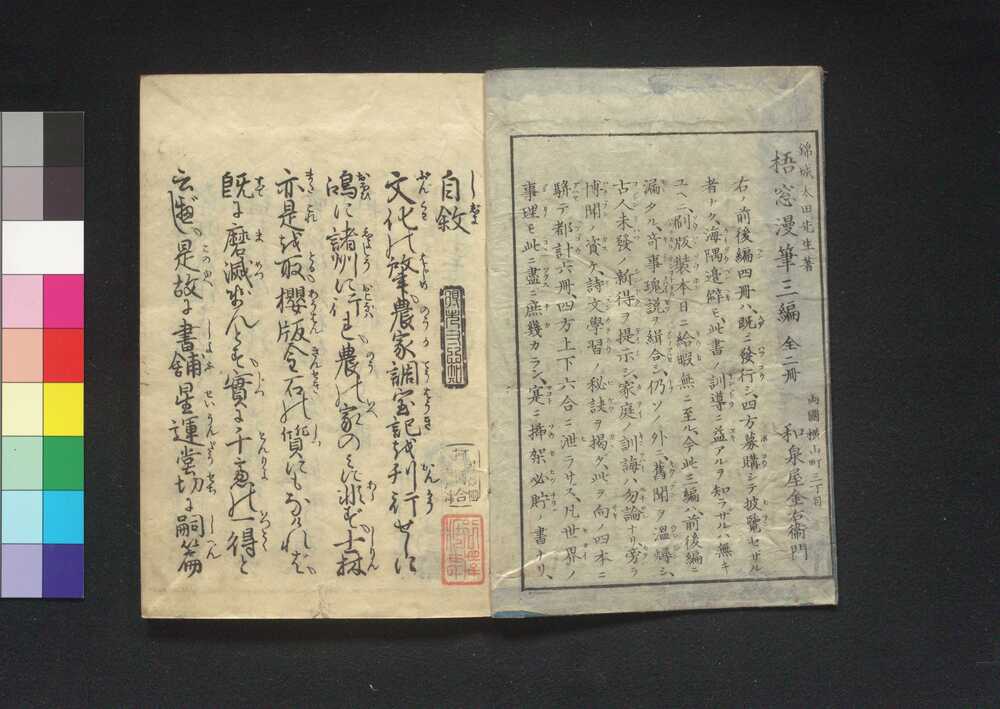 錦城太田先生著
梧窓漫筆三編 全二冊
両國横山町三丁目
和泉屋金右衛門
右ノ前後編四冊ハ既ニ發行シ四方募購シテ披覽セザル
者ナク海隅遺僻モ此書ノ訓導ニ益アルヲ知ラザルハ無キ
ユヱ刷版裝本日ニ給暇無ニ至ル今此三編ハ前後編ニ
漏タル奇事瑰説ヲ緝合シ仍ソノ外ニ舊聞ヲ温繹シ
古人未發ノ新得ヲ提示シ家庭ノ訓誨ハ勿論ナリ旁ラ
博聞ノ資ケ詩文學習ノ秘訣ヲ掲グ此ヲ向ノ四本ニ
騈テ都計六冊四方上下六合ニ泄ラサス凡世界ノ
事理モ此ニ盡ニ庶幾カラン寔ニ挿架必貯ノ書ナリ
自敘
文化の肇農家調宝記を刊行せしに
鴻に諸州に行れ農の家のみに非ず士林
亦是を取櫻版金石の質にもあらねば
既に磨滅せんとす實に千慮の一得と
云べし是故に書舗星運堂切に嗣篇